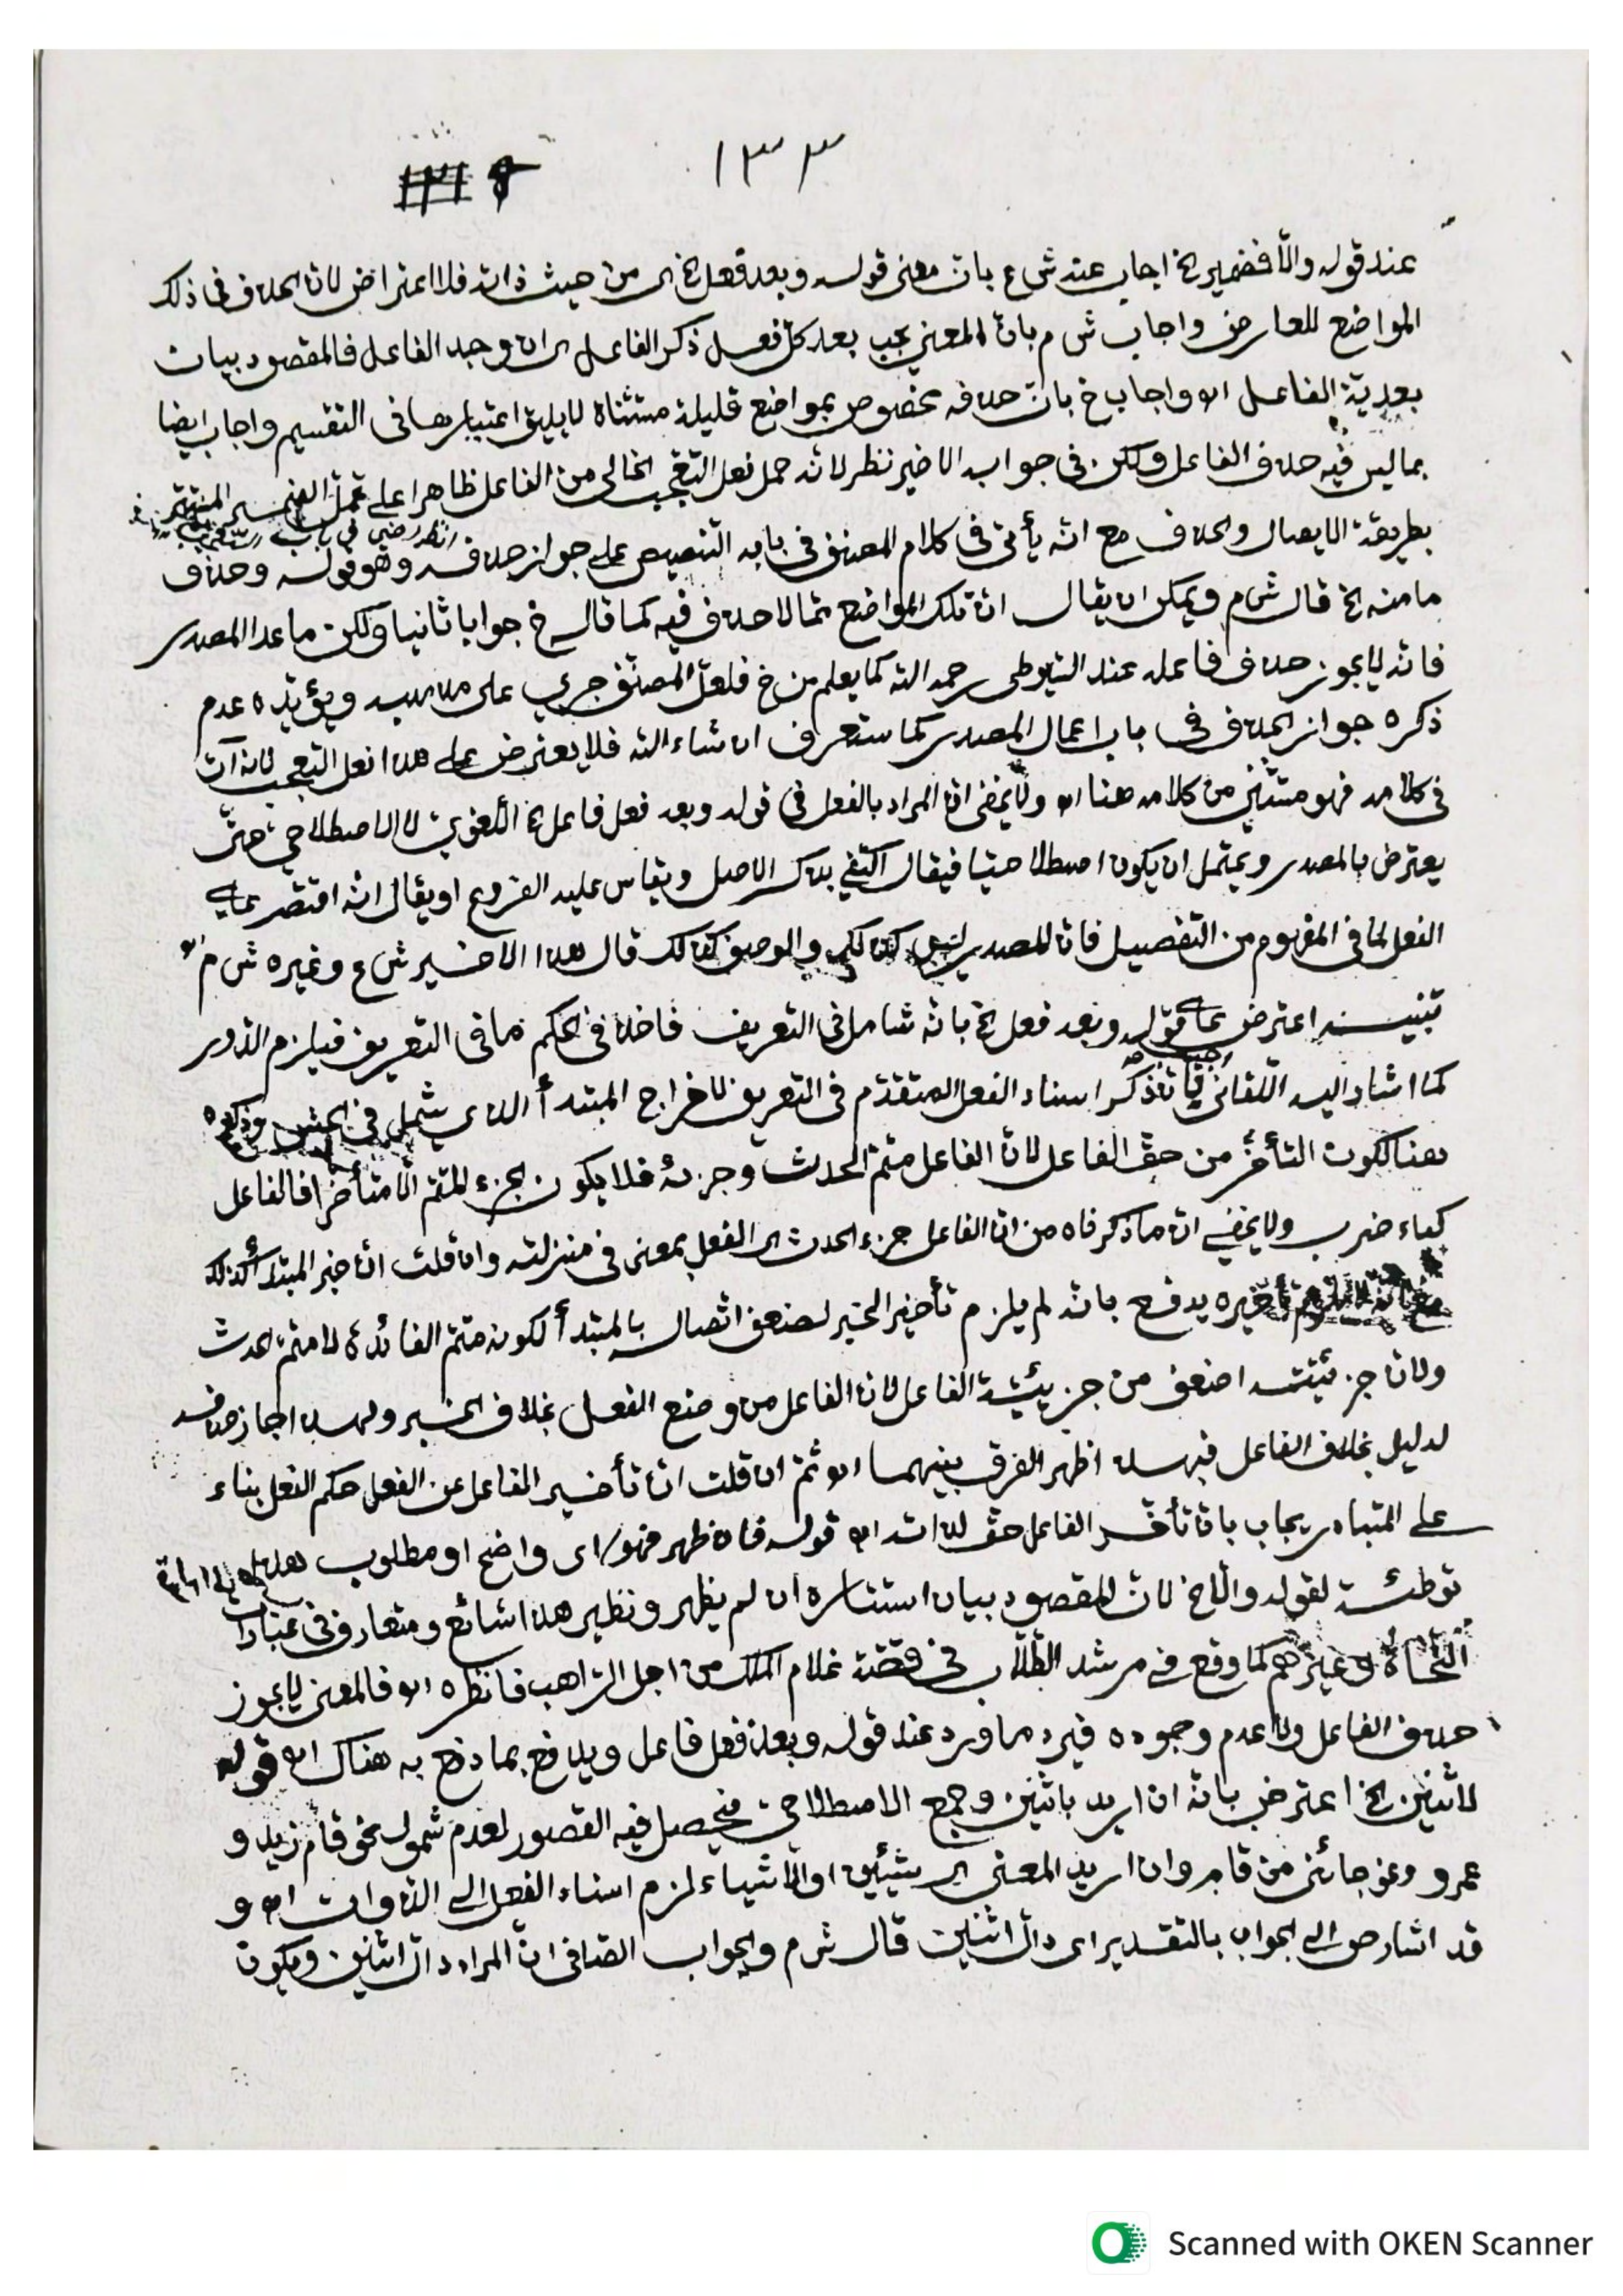 ١٣٣
عند قوله والّا فضمير الخ اجاب عنه ش ع بان معنى قوله وبعد فعل الخ اى من حيث ذاته فلا اعتراض لان الحذف فى ذلك
المواضع للعارض واجاب ش م بان المعنى يجب بعد كل فعل ذكر الفاعل اى ان وجد الفاعل فالمقصود بيان
بعديّة الفاعل اه واجاب خ بان حذفه مخصوص بمواضع قليلة مستثناة لا يليق اعتبارها فى التقسيم واجاب ايضا
بما ليس فيه حذف الفاعل ولكن فى جوابه الاخير نظر لانه حمل فعل التعجّب الخالى من الفاعل ظاهرا على تحمّل الضمير المستتر
انظر رضى فى باب
بطريقة الايصال والحذف مع انّه يأتى فى كلام المصنف فى بابه التنصيص على جواز حذفه وهو قوله وحذف
ما منه الخ قال ش م ويمكن ان يقال انّ تلك المواضع ممّا لا حذف فيه كما قال خ جوابا ثانيا ولكن ما عدا المصدر
فانه لا يجوز حذف فاعله عند السّيوطى رحمه الله كما يعلم من خ فلعلّ المصنّف جرى على مذهبه ويؤيّده عدم
ذكره جواز الحذف فى باب اعمال المصدر كما ستعرف ان شاء الله فلا يعترض على هذا فعل التعجب لانه آت
فى كلامه فهو مستثنى من كلامه هنا اه ولا يخفى انّ المراد بالفعل فى قوله وبعد فعل فاعل الخ اللّغوىّ لا الاصطلاحىّ حتّى
يعترض بالمصدر ويحتمل ان يكون اصطلاحيّا فيقال اكتفى بذكر الاصل ويقاس عليه الفروع او يقال انّه اقتصر على
الفعل لما فى المفهوم من التفصيل فانّ المصدر ليس كذلك والوصف كذلك قال هذا الاخير ش ع وغيره ش م اه
تنبيه اعترض على قوله وبعد فعل الخ بانّه شامل فى التعريف فاخذ فى الحكم ما فى التعريف فيلزم الدّور
كما اشار اليه اللّقانى اجيب بانّ ذكر اسناد الفعل المتقدّم فى التعريف لاخراج المبتدأ الذى يشمل فى الجنس وذكره
هنا لكون التأخّر من حقّ الفاعل لانّ الفاعل متمّ الحدث وجزئه فلا يكون الجزء المتمّ الّا متأخّرا فالفاعل
كباء ضرب ولا يخفى انّ ما ذكرناه من انّ الفاعل جزء الحدث اى الفعل بمعنى فى منزلته وان قلت انّ خبر المبتدأ كذلك
مع انّه لا يلزم تأخيره يدفع بانّه لم يلزم تأخير الخبر لضعف اتّصاله بالمبتدأ لكونه متمّ الفائدة لا متمّ الحدث
ولانّ جزئيّته اضعف من جزئيّة الفاعل لانّ الفاعل من وضع الفعل بخلاف الخبر ولهذا اجاز حذفه
لدليل بخلاف الفاعل فبهذا اظهر الفرق بينهما اه ثمّ ان قلت انّ تأخير الفاعل عن الفعل حكم الفعل بناء
على المتبادر يجاب بانّ تأخّر الفاعل حقّ لذاته اه قوله فان ظهر فهو اى واضح او مطلوب
توطئة لقوله والّا الخ لانّ المقصود بيان استتاره ان لم يظهر ونظير هذا شائع ومتعارف فى عبارات
النّحاة وغيرهم كما وقع فى مرشد الطّلّاب فى قصّة غلام الملك من اجل الرّاهب فانظره اه فالمعنى لا يجوز
حذف الفاعل ولا عدم وجوده فيرد ما ورد عند قوله وبعد فعل فاعل ويدفع بما دفع به هناك اه قوله
لاثنين الخ اعترض بانّه ان اريد باثنين وجمع الاصطلاحىّ فيحصل فيه القصور لعدم شموله نحو قام زيد و
عمرو ونحو جائنى من قام وان اريد المعنى اى شيئين او الاشياء لزم اسناد الفعل الى الذّوات اه و
قد اشار ص الى الجواب بالتقدير اى دالّ اثنين قال ش م والجواب الصّافى انّ المراد دالّ اثنين ويكون
Scanned with OKEN Scanner